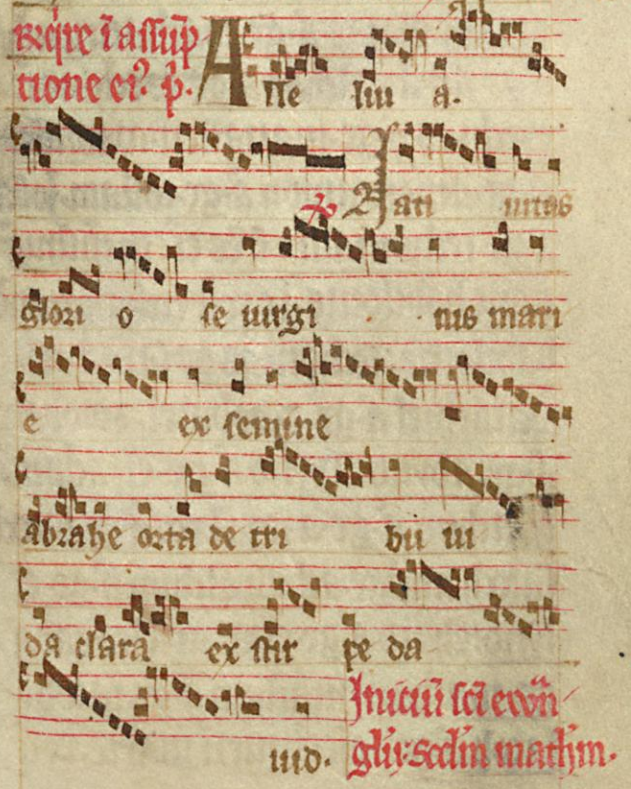 Reqͥre ī assūp
tione eiꝰ. p̄.
Alle luı a.
℣ Nati uitas
glori o se uirgi nis mari
e ex semine
abrahe orta de tri bu iu
da clara ex stir pe da
uid.
Iniciū sc̄i ewn̄
glij. scdm mathm.